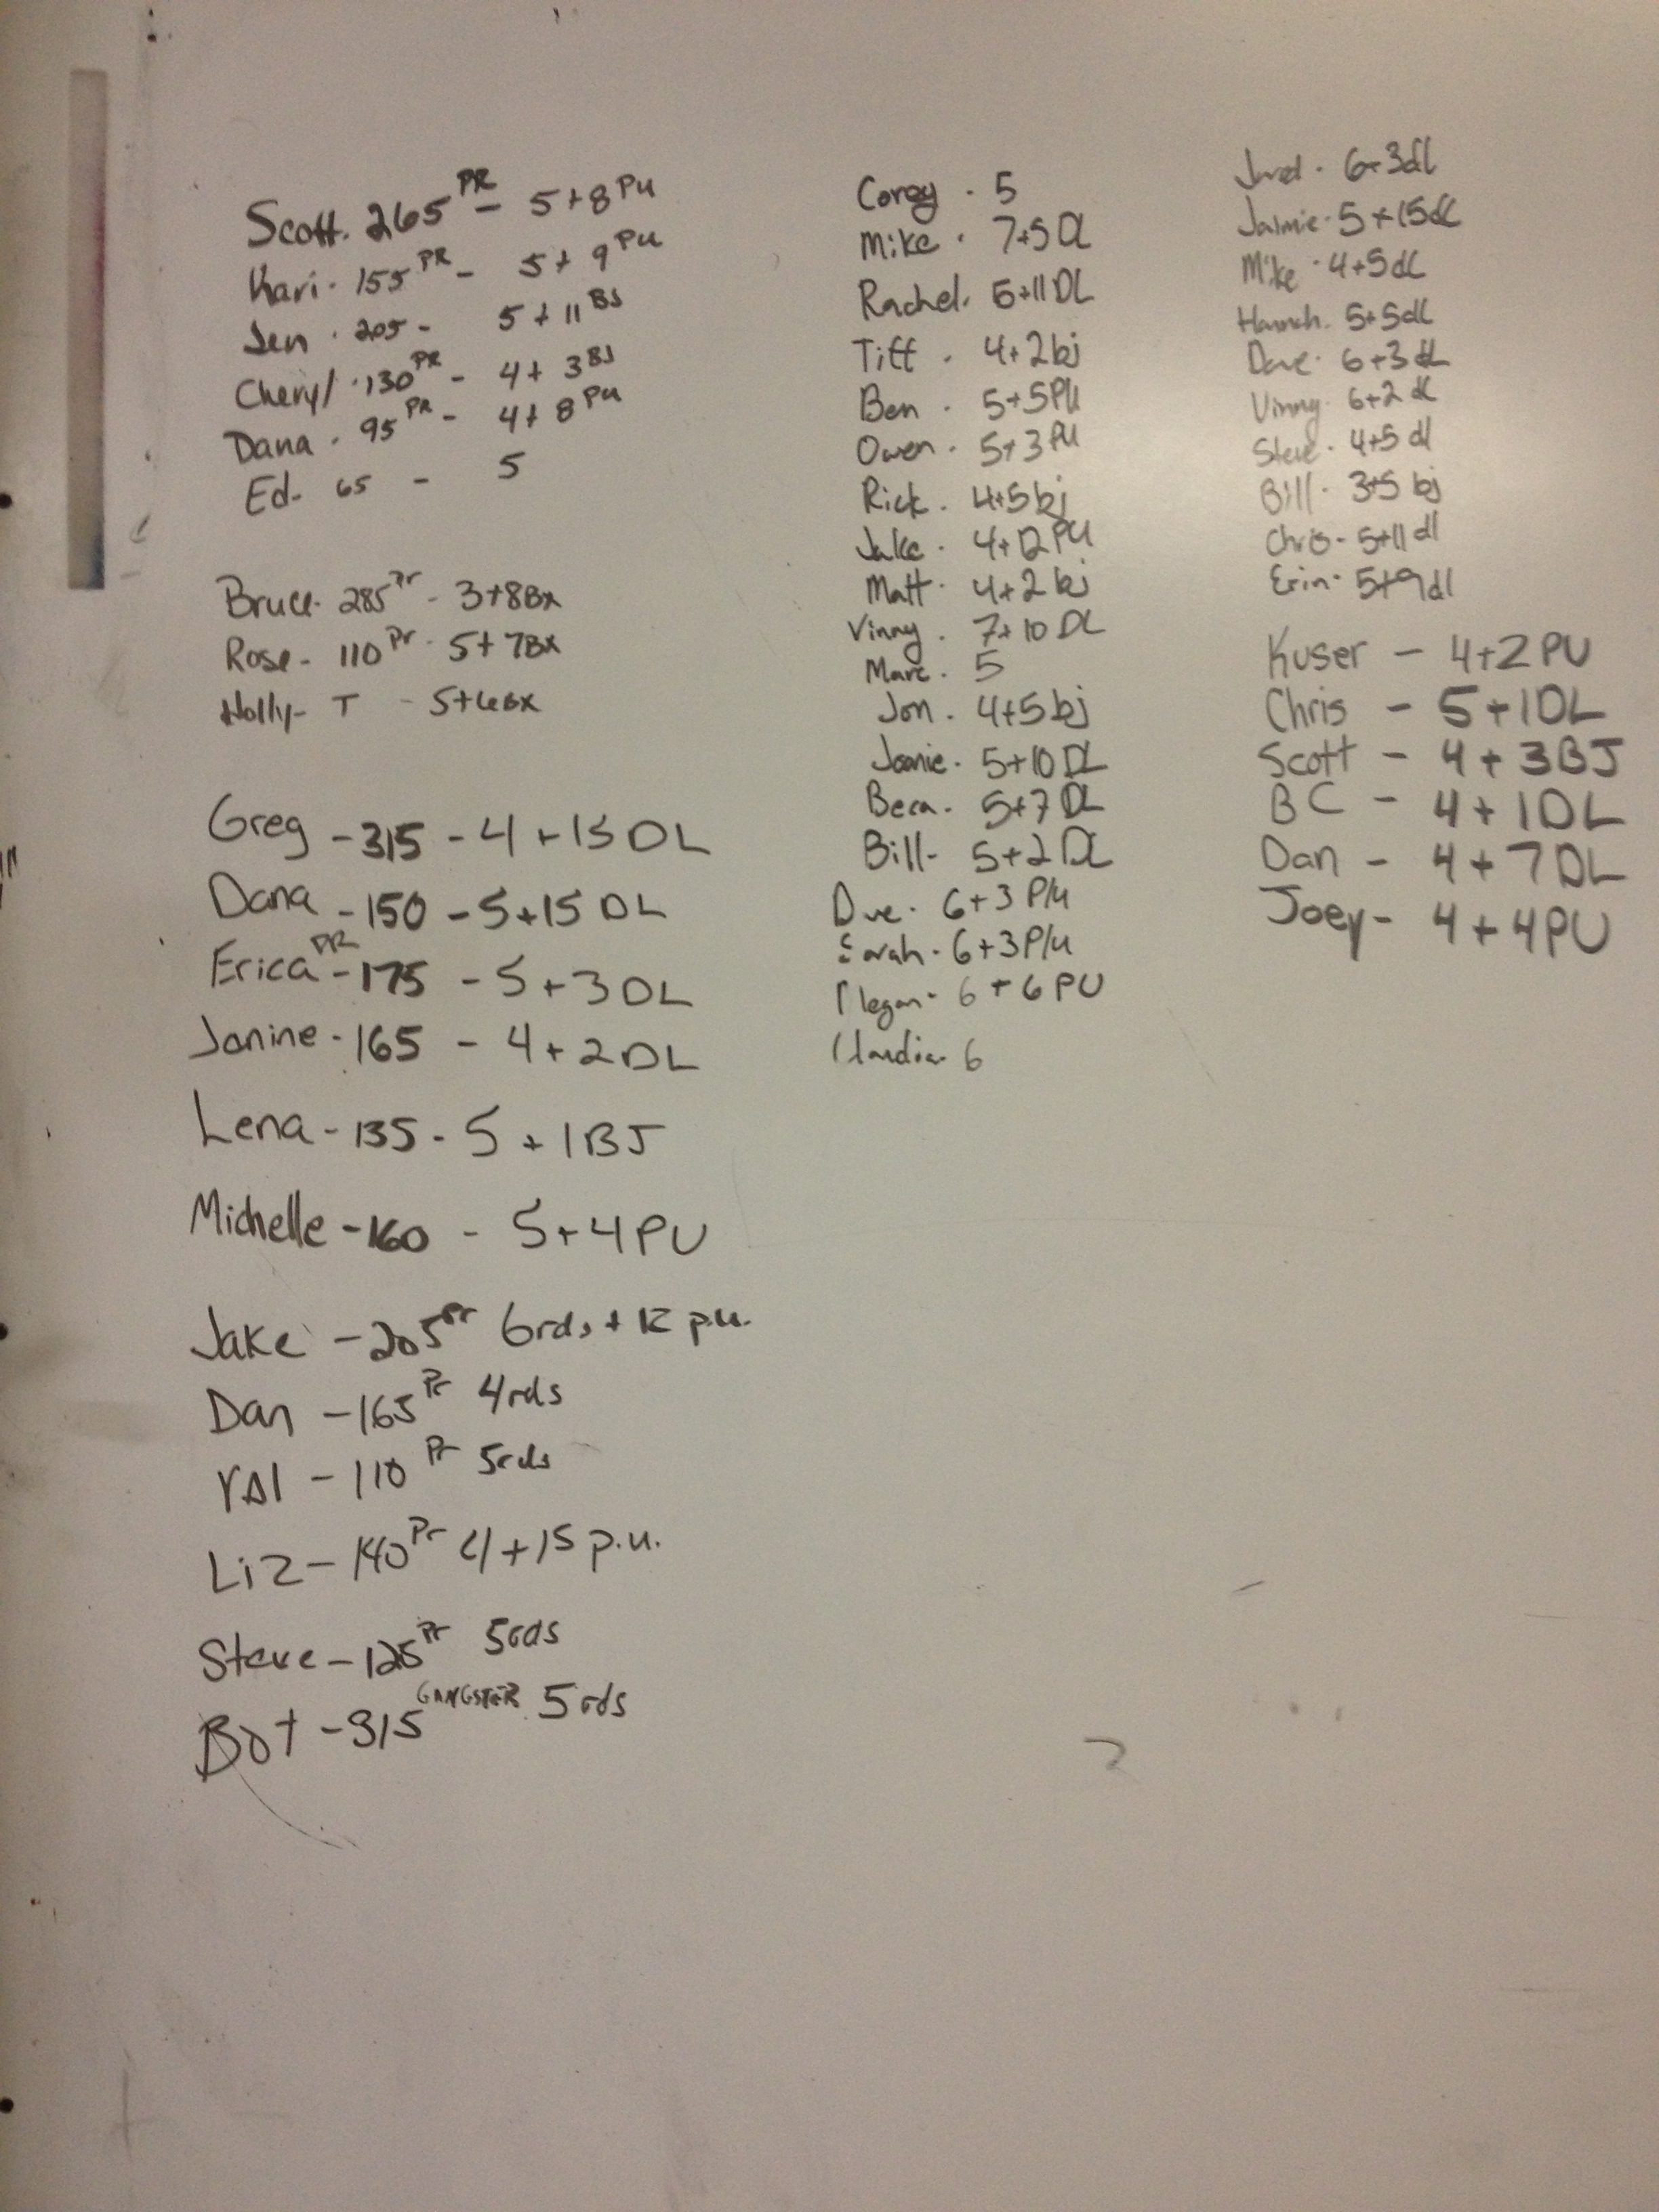 Scott. 265 PR - 5+8 PU
Kari. 155 PR - 5+ 9 PU
Jen. 205 - 5+11 BJ
Cheryl. 130 PR - 4+ 3 BJ
Dana. 95 PR - 4+ 8 PU
Ed- 65 - 5
Bruce- 285 Pr - 3+8Bx
Rose- 110 Pr - 5+7Bx
Holly- T - 5+6Bx
Greg -315 - 4+15 DL
Dana -150 - 5+15 DL
Erica PR -175 - 5+3 DL
Janine -165 - 4+2 DL
Lena -135 - 5+1 BJ
Michelle -160 - 5+4 PU
Jake -205 Pr 6rds + 12 p.u.
Dan -165 Pr 4rds
VAl -110 Pr 5rds
Liz -140 Pr 4+15 p.u.
Steve -125 Pr 5rds
-315 GANGSTER 5rds
Corey. 5
Mike. 7+5 DL
Rachel. 5+11 DL
Tiff. 4+2 bj
Ben. 5+5 PU
Owen. 5+3 PU
Rick. 4+5 bj
Jake. 4+12 PU
Matt. 4+2 bj
Vinny. 7+10 DL
Marc. 5
Jon. 4+5 bj
Joanie. 5+10 DL
Beca. 5+7 DL
Bill- 5+2 DL
6+3 P/U
Sarah- 6+3 P/U
Megan- 6+6 PU
Claudia- 6
Jared. 6+3dl
Jaimie. 5+15dl
Mike. 4+5dl
Hannah. 5+5dl
Dave. 6+3 dL
Vinny. 6+2 dl
Steve. 4+5 dl
Bill. 3+5 bj
Chris- 5+11 dl
Erin- 5+9dl
Kuser - 4+2 PU
Chris - 5+1DL
Scott - 4+3BJ
BC - 4+1DL
Dan - 4+7DL
Joey - 4+4PU